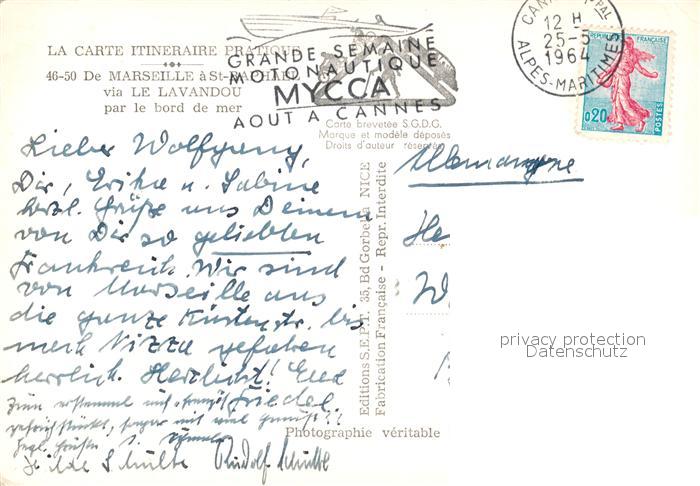 LA CARTE ITINERAIRE PRATIQUE
46-50 De MARSEILLE à St-RAPHAEL
via LE LAVANDOU
par le bord de mer
GRANDE SEMAINE
MOTONAUTIQUE
MYCCA
AOUT A CANNES
12 H
25-5
1964
ALPES-MARITIMES
0,20
POSTES
Carte brevetée S.G.D.G.
Marque et modèle déposés
Droits d'auteur réservés
Lieber Wolfgang,
Dir, Erika u. Sabine
herzl. Grüße aus Deinem
von Dir so geliebten
Frankreich. Wir sind
von Marseille aus
die ganze Küstenstr. bis
nach Nizza gefahren
herrlich. Herzlichst! Euer
Friedel
Zum erstenmal
gefrühstückt,
Ilde Schulte Rudolf Schulte
Allemangne
He
W
Editions S.E.P.T. 35, Bd Gorbella NICE
Fabrication Française - Repr. Interdite
Photographie véritable
privacy protection
Datenschutz